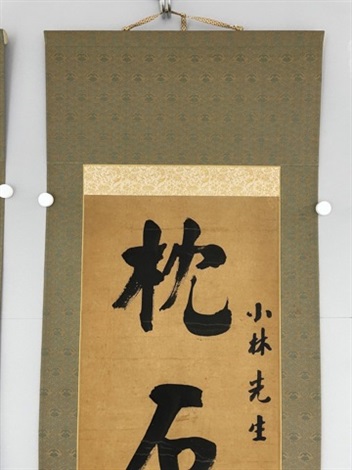 小林先生
枕石